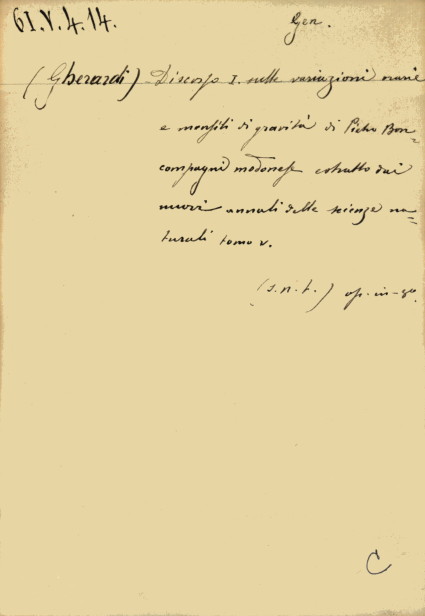 61.V.4.14.
Gen.
(Gherardi) Discorso I. sulle variazioni orarie
e mensili di gravità di Pietro Bon=
compagni modonese estratto dai
nuovi annali delle scienze na=
turali tomo V.
(s.n.t.) op. in-8º.
C